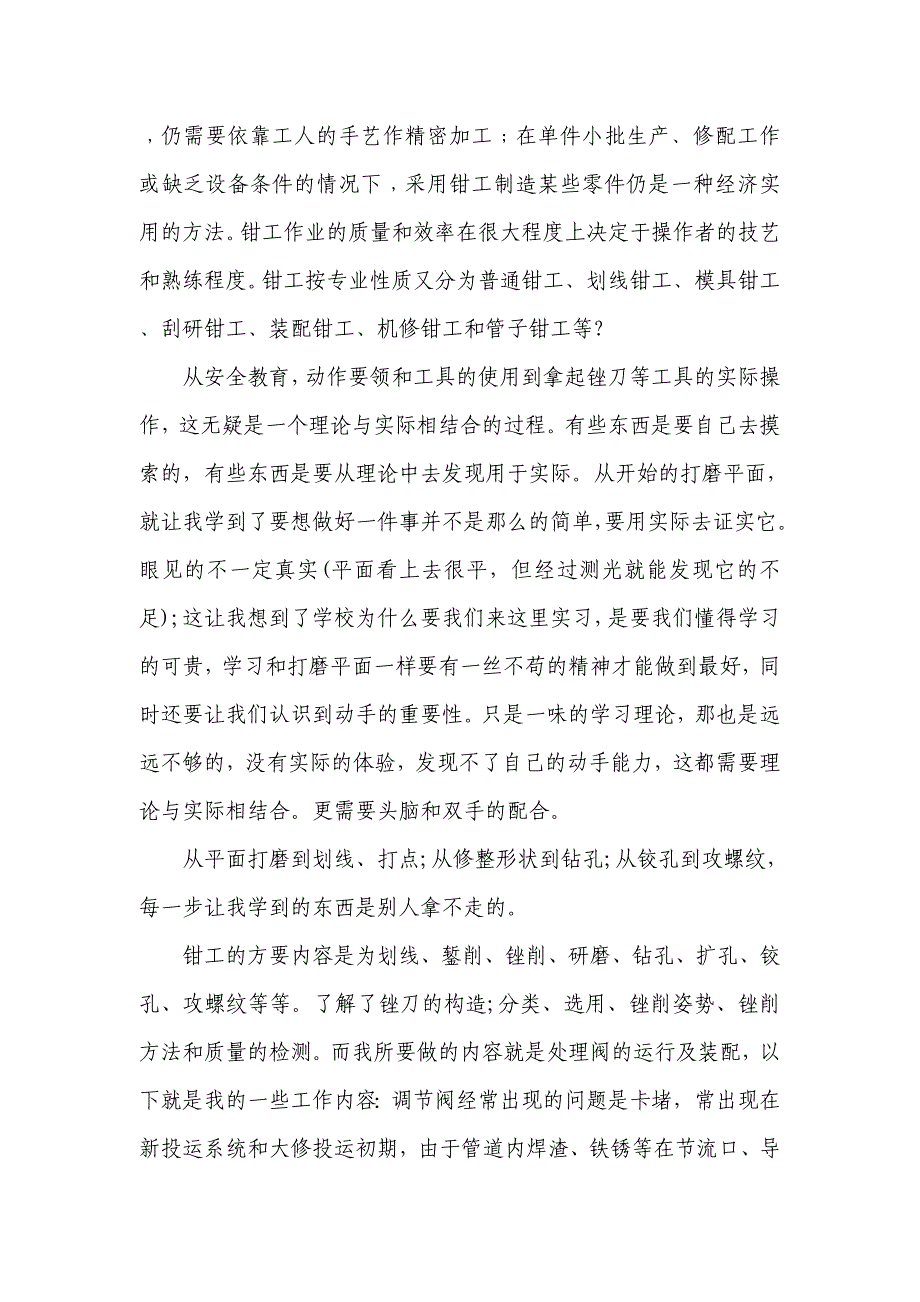 ，仍需要依靠工人的手艺作精密加工；在单件小批生产、修配工作
或缺乏设备条件的情况下，采用钳工制造某些零件仍是一种经济实
用的方法。钳工作业的质量和效率在很大程度上决定于操作者的技艺
和熟练程度。钳工按专业性质又分为普通钳工、划线钳工、模具钳工
、刮研钳工、装配钳工、机修钳工和管子钳工等?
从安全教育，动作要领和工具的使用到拿起锉刀等工具的实际操
作，这无疑是一个理论与实际相结合的过程。有些东西是要自己去摸
索的，有些东西是要从理论中去发现用于实际。从开始的打磨平面，
就让我学到了要想做好一件事并不是那么的简单，要用实际去证实它。
眼见的不一定真实(平面看上去很平，但经过测光就能发现它的不
足);这让我想到了学校为什么要我们来这里实习，是要我们懂得学习
的可贵，学习和打磨平面一样要有一丝不苟的精神才能做到最好，同
时还要让我们认识到动手的重要性。只是一味的学习理论，那也是远
远不够的，没有实际的体验，发现不了自己的动手能力，这都需要理
论与实际相结合。更需要头脑和双手的配合。
从平面打磨到划线、打点;从修整形状到钻孔;从铰孔到攻螺纹，
每一步让我学到的东西是别人拿不走的。
钳工的方要内容是为划线、錾削、锉削、研磨、钻孔、扩孔、铰
孔、攻螺纹等等。了解了锉刀的构造;分类、选用、锉削姿势、锉削
方法和质量的检测。而我所要做的内容就是处理阀的运行及装配，以
下就是我的一些工作内容: 调节阀经常出现的问题是卡堵，常出现在
新投运系统和大修投运初期，由于管道内焊渣、铁锈等在节流口、导